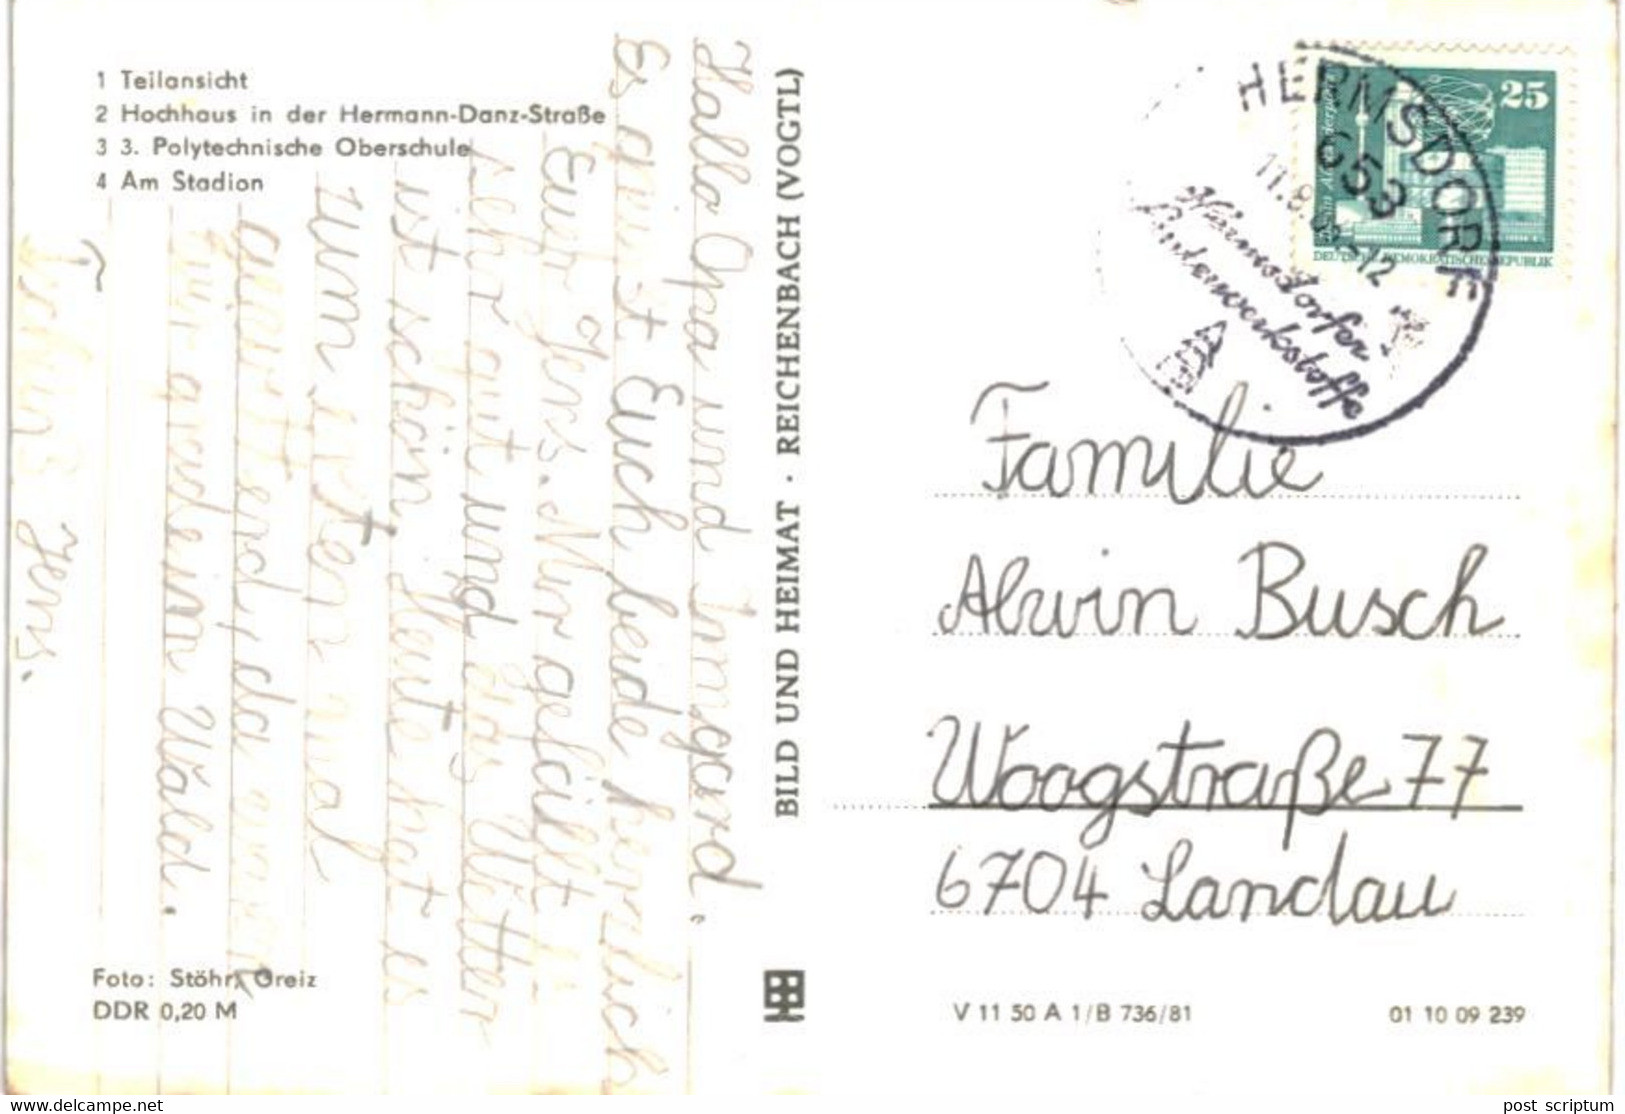 1 Teilansicht
2 Hochhaus in der Hermann-Danz-Straße
3 3. Polytechnische Oberschule
4 Am Stadion
Hallo Opa und Irmgard.
Es grüßt Euch beide herzlich
Euer Jens. Mir gefällt
sehr gut und das Wetter
ist schön. Heute hat es
zum ersten mal
gewittert, da waren
wir gerade im Wald.
Tschüß Jens.
Foto: Stöhr, Greiz
DDR 0,20 M
BILD UND HEIMAT · REICHENBACH (VOGTL)
HERMSDORF
653
11.8.
-12
Hermsdorfer
25
DEUTSCHE DEMOKRATISCHE REPUBLIK
Familie
Alwin Busch
Woogstraße 77
6704 Landau
V 11 50 A 1/B 736/81
01 10 09 239
www.delcampe.net
post_scriptum